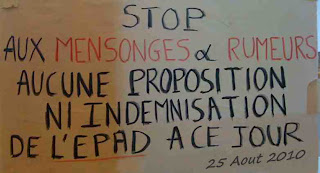 STOP
AUX MENSONGES & RUMEURS
AUCUNE PROPOSITION
NI INDEMNISATION
DE L'EPAD A CE JOUR
25 Aout 2010